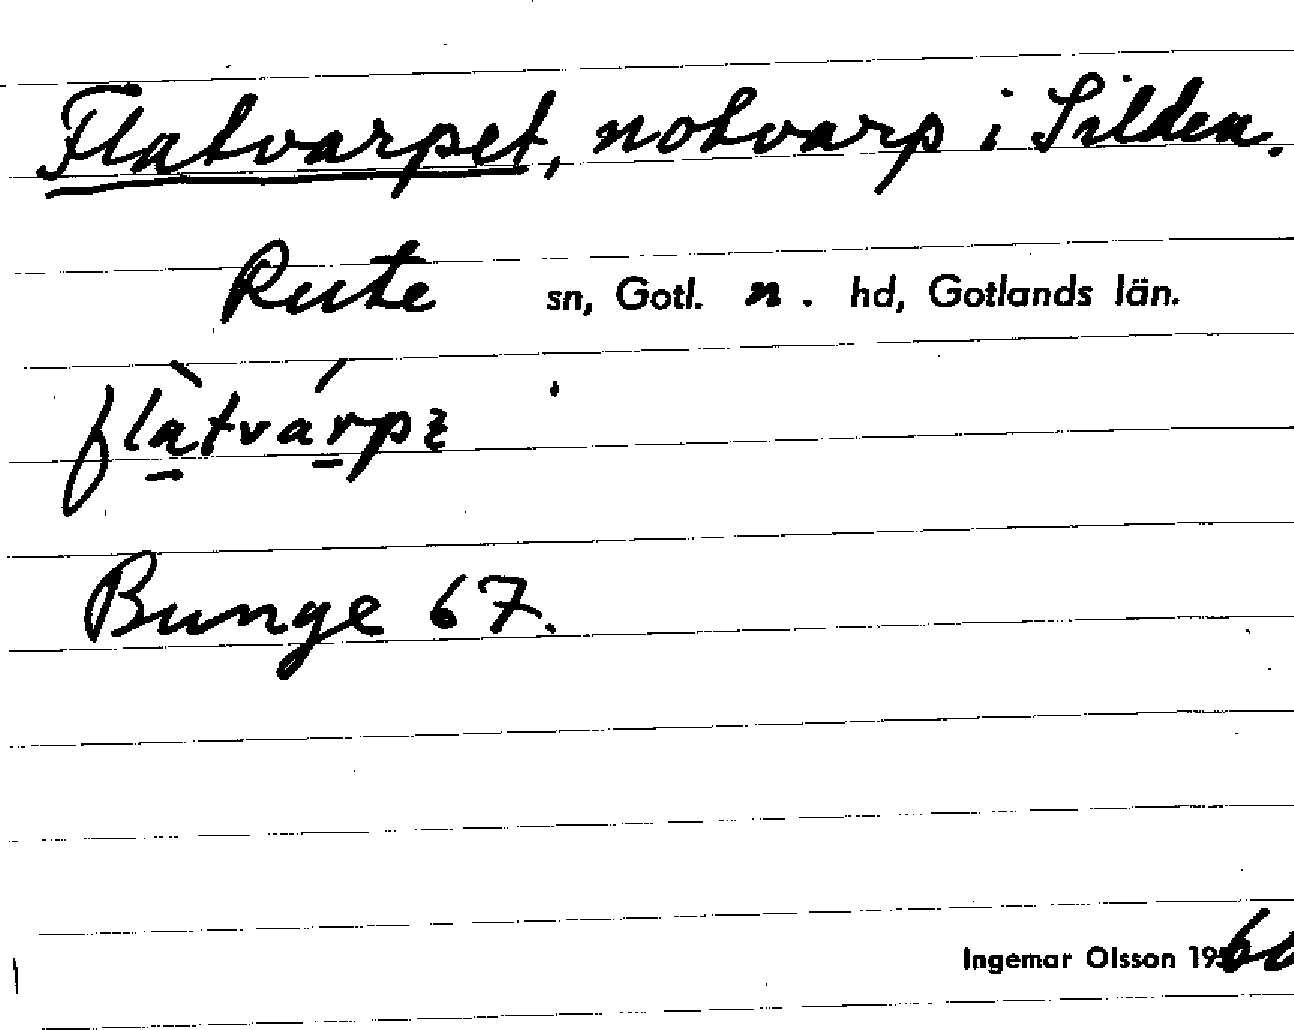 Flatvarpet, notvarp i Silden.
Rute sn, Gotl. n. hd, Gotlands län.
flàtvárpƨ
Bunge 67.
Ingemar Olsson 1960